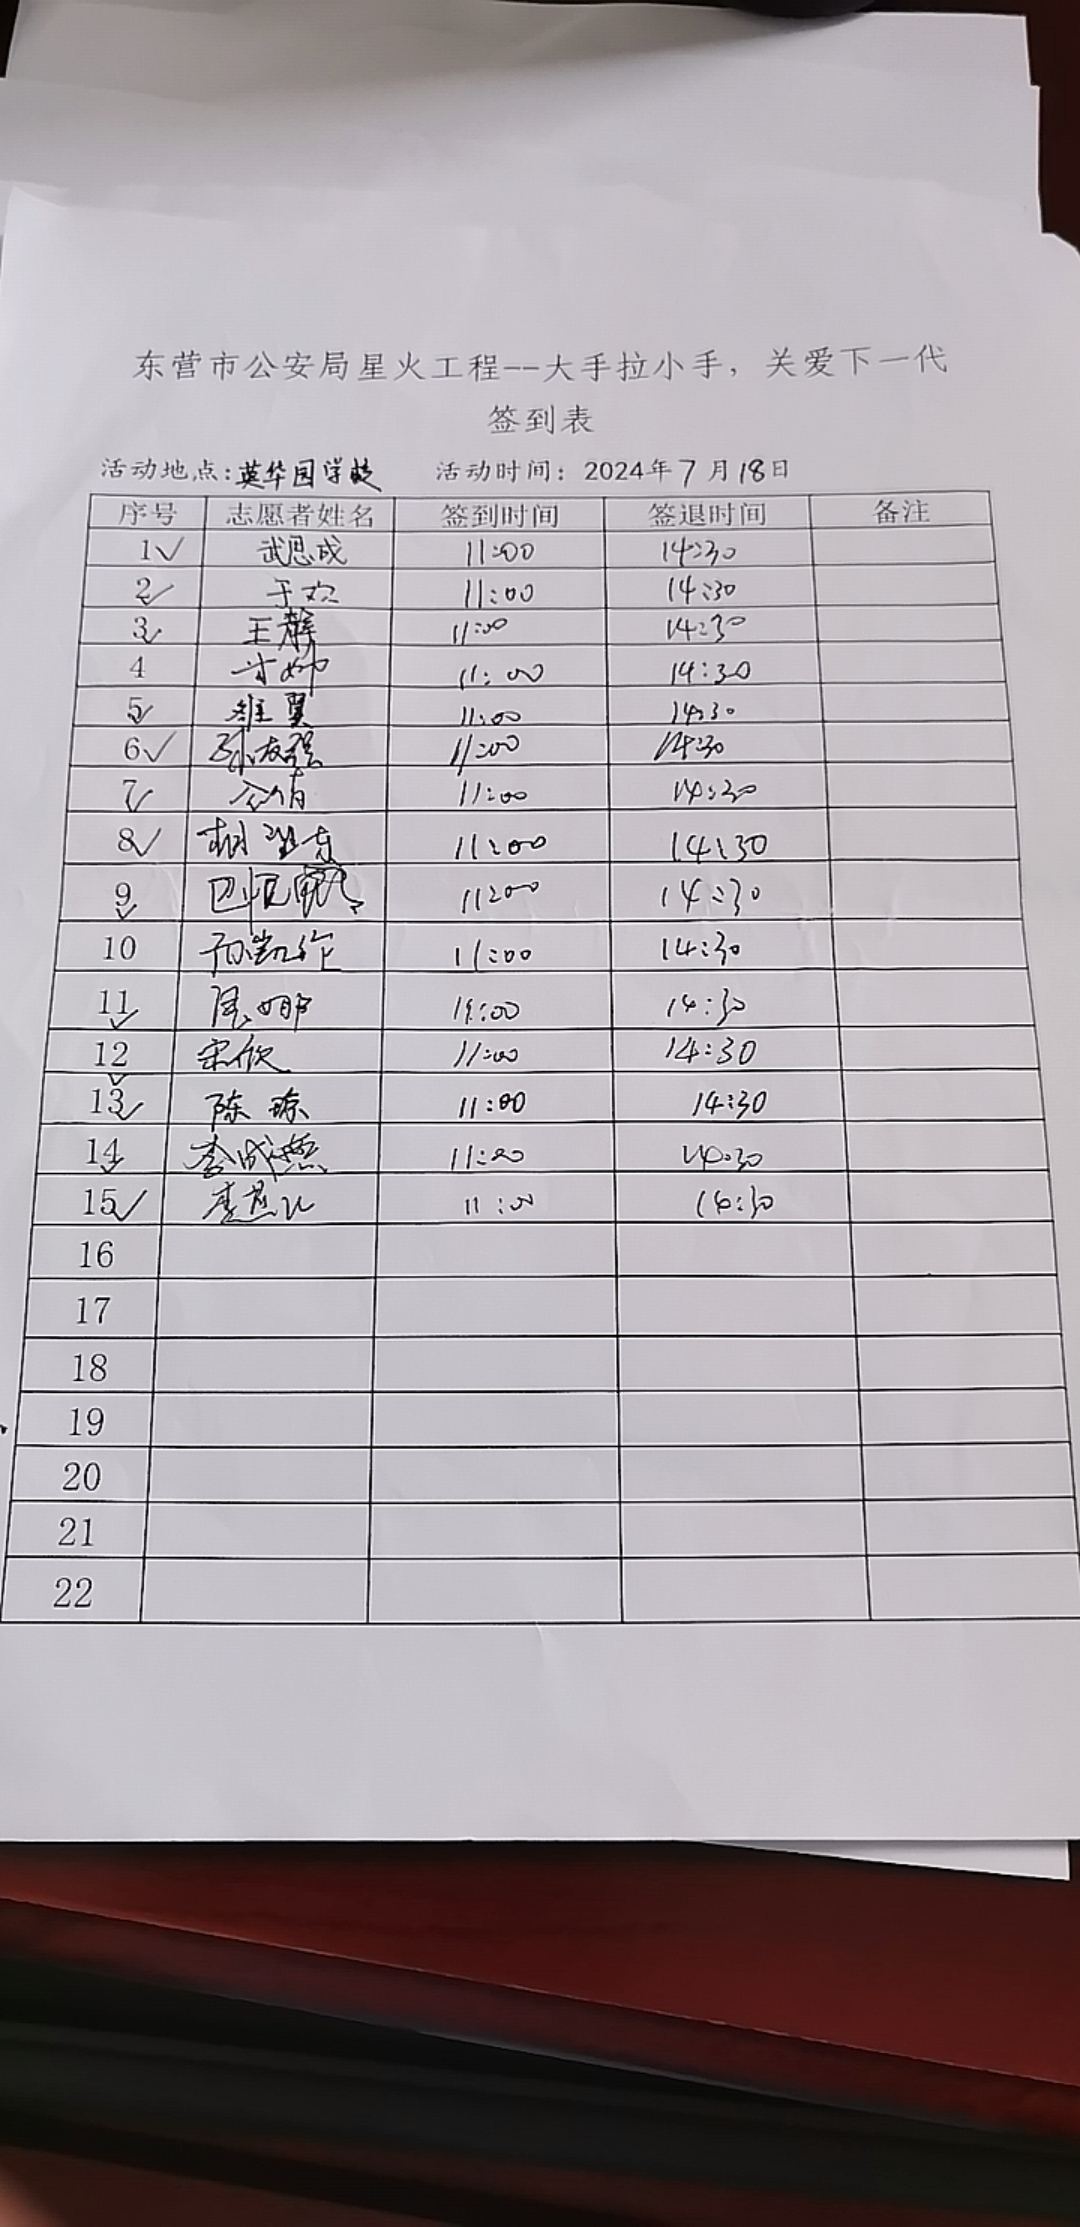 东营市公安局星火工程--大手拉小手，关爱下一代
签到表
活动地点:英华园学校 活动时间：2024年7月18日
序号 志愿者姓名 签到时间 签退时间 备注
1✓ 武思成 11:00 14:30
2✓ 于欢 11:00 14:30
3✓ 王静 11:00 14:30
4 11:00 14:30
5✓ 翼 11:00 14:30
6✓ 孙友强 11:00 14:30
7✓ 11:00 14:30
8✓ 11:00 14:30
9✓ 巴 11:00 14:30
10 凯 11:00 14:30
11✓ 娜 11:00 14:30
12✓ 宋欣 11:00 14:30
13✓ 陈琼 11:00 14:30
14✓ 李成燕 11:00 14:30
15✓ 李 11:00 14:30
16
17
18
19
20
21
22